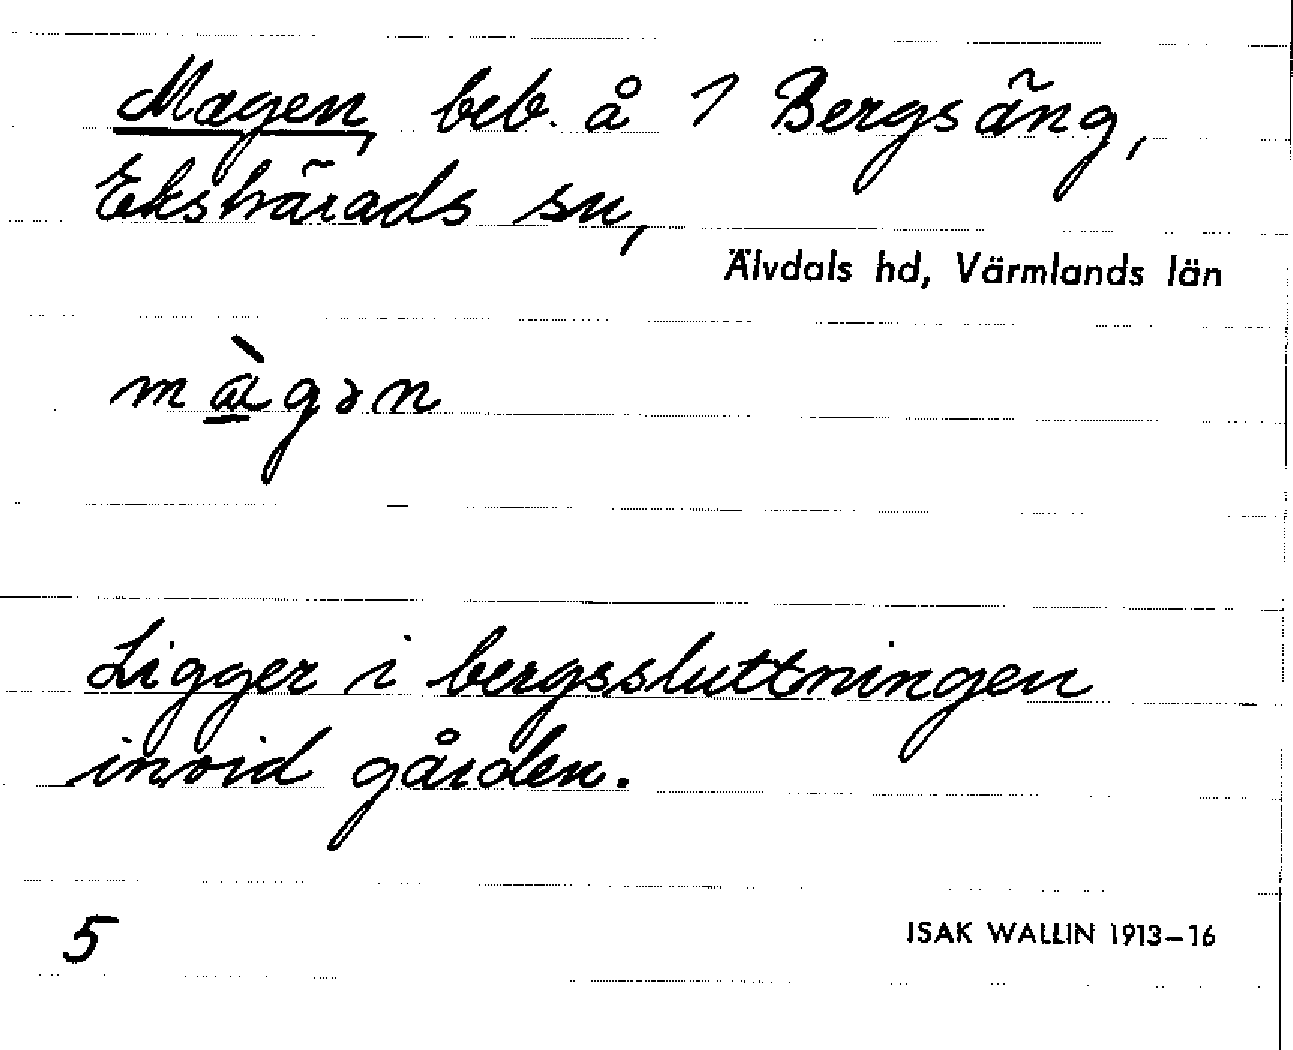 Magen, beb. å 1 Bergsäng,
Ekshärads sn,
Älvdals hd, Värmlands län
mà̱gən
Ligger i bergssluttningen
invid gården.
5
ISAK WALLIN 1913–16